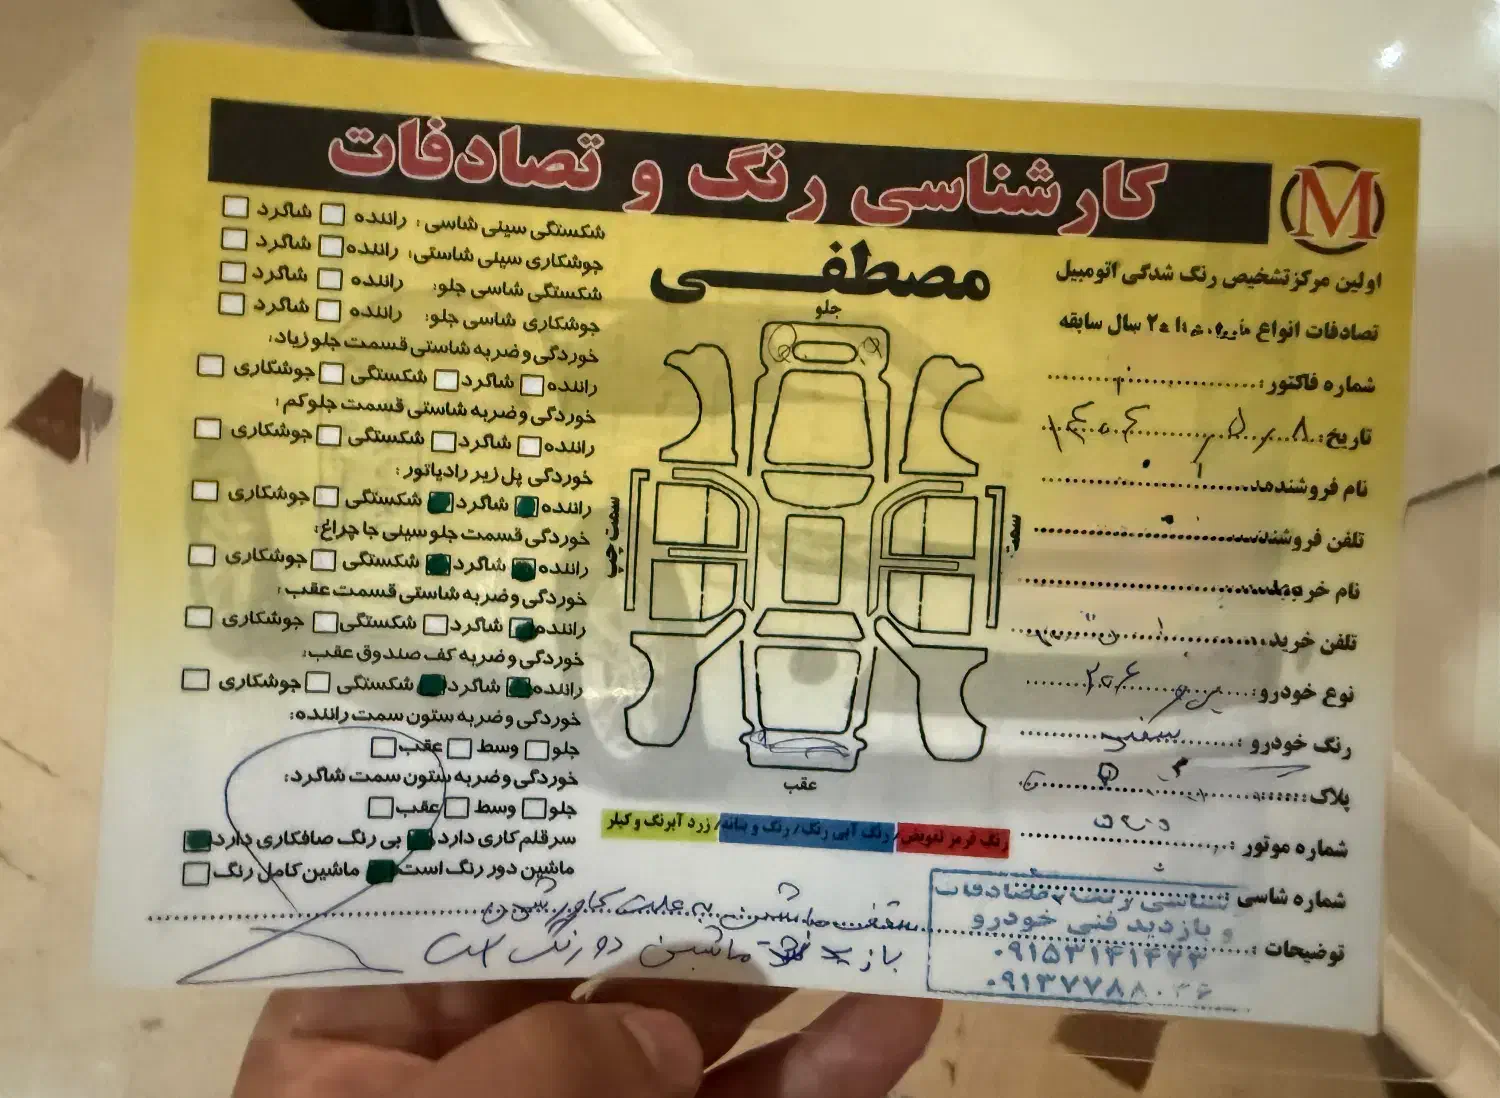 کارشناسی رنگ و تصادفات
M
مصطفی
اولین مرکز تشخیص رنگ شدگی اتومبیل
تصادفات انواع سال سابقه
شماره فاکتور:
تاریخ:
نام فروشنده
تلفن فروشنده
نام خریدار
تلفن خرید
نوع خودرو: ۲۰۶
رنگ خودرو: سفید
پلاک:
شماره موتور:
شماره شاسی
توضیحات:
جلو
سمت چپ
سمت
عقب
رنگ قرمز تعویض/ رنگ آبی رنگ/ رنگ و بتانه/ زرد آبرنگ و کیلر
شکستگی سینی شاسی: راننده شاگرد
جوشکاری سینی شاستی: راننده شاگرد
شکستگی شاسی جلو: راننده شاگرد
جوشکاری شاسی جلو: راننده شاگرد
خوردگی و ضربه شاستی قسمت جلو زیاد:
راننده شاگرد شکستگی جوشکاری
خوردگی و ضربه شاستی قسمت جلو کم:
راننده شاگرد شکستگی جوشکاری
خوردگی پل زیر رادیاتور:
راننده شاگرد شکستگی جوشکاری
خوردگی قسمت جلو سینی جا چراغ:
راننده شاگرد شکستگی جوشکاری
خوردگی و ضربه شاستی قسمت عقب:
راننده شاگرد شکستگی جوشکاری
خوردگی و ضربه کف صندوق عقب:
راننده شاگرد شکستگی جوشکاری
خوردگی و ضربه ستون سمت راننده:
جلو وسط عقب
خوردگی و ضربه ستون سمت شاگرد:
جلو وسط عقب
سرقلم کاری دارد بی رنگ صافکاری دارد
ماشین دور رنگ است ماشین کامل رنگ
سقف ماشین به علت کاور شدن
باز ماشین دور رنگ است
و بازدید فنی خودرو
۰۹۱۵۳۱۴۱۴۲۳